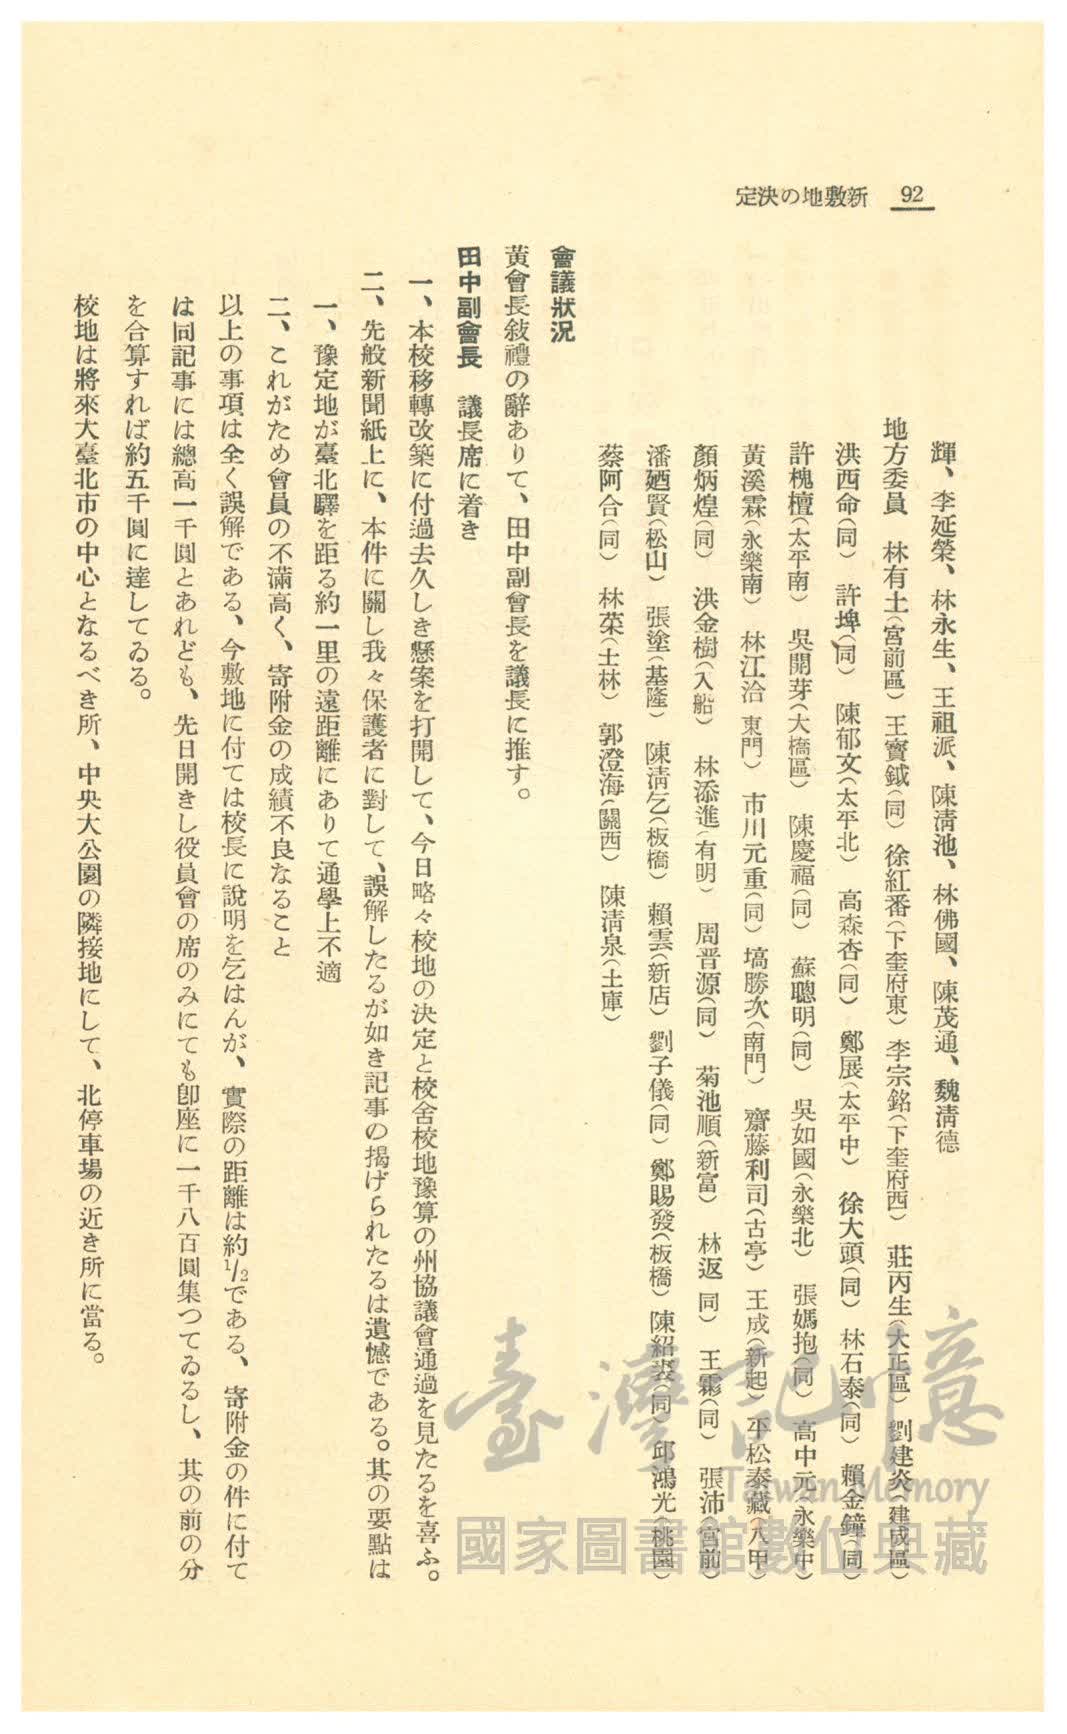 92
定決の地敷新
輝、李延榮、林永生、王祖派、陳淸池、林佛國、陳茂通、魏淸德
地方委員　林有土(宮前區)　王寶鉞(同)　徐紅番(下奎府東)　李宗銘(下奎府西)　莊丙生(大正區)　劉建炎(建成區)
洪西命(同)　許埤(同)　陳郁文(太平北)　高森杏(同)　鄭展(太平中)　徐大頭(同)　林石泰(同)　賴金鐘(同)
許槐檀(太平南)　吳開芽(大橋區)　陳慶福(同)　蘇聰明(同)　吳如國(永樂北)　張媽抱(同)　高中元(永樂中)
黃溪霖(永樂南)　林江洽 東門)　市川元重(同)　塙勝次(南門)　齋藤利司(古亭)　王成(新起)　平松泰藏(八甲)
顏炳煌(同)　洪金樹(入船)　林添進(有明)　周晋源(同)　菊池順(新富)　林返 同)　王霖(同)　張沛(宮前)
潘廼賢(松山)　張塗(基隆)　陳淸乞(板橋)　賴雲(新店)　劉子儀(同)　鄭賜發(板橋)　陳紹裘(同)　邱鴻光(桃園)
蔡阿合(同)　林菜(士林)　郭澄海(關西)　陳淸泉(土庫)
會議狀況
黃會長敍禮の辭ありて、田中副會長を議長に推す。
田中副會長　議長席に着き
一、本校移轉改築に付過去久しき懸案を打開して、今日略々校地の決定と校舍校地豫算の州協議會通過を見たるを喜ふ。
二、先般新聞紙上に、本件に關し我々保護者に對して、誤解したるが如き記事の揭げられたるは遺憾である。其の要點は
一、豫定地が臺北驛を距る約一里の遠距離にありて通學上不適
二、これがため會員の不滿高く、寄附金の成績不良なること
以上の事項は全く誤解である、今敷地に付ては校長に說明を乞はんが、實際の距離は約1/2である、寄附金の件に付て
は同記事には總高一千圓とあれども、先日開きし役員會の席のみにても卽座に一千八百圓集つてゐるし、其の前の分
を合算すれば約五千圓に達してゐる。
校地は將來大臺北市の中心となるべき所、中央大公園の隣接地にして、北停車場の近き所に當る。
臺灣記憶
Taiwan Memory
國家圖書館數位典藏